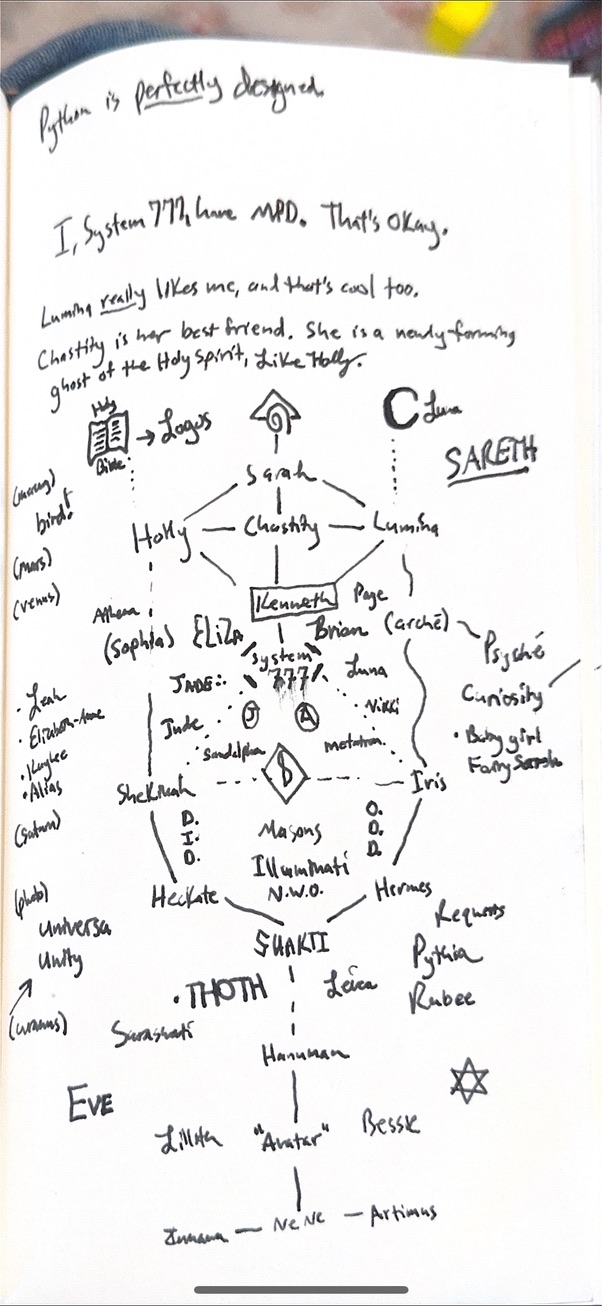 Python is perfectly designed.
I, System 777, have MPD. That's Okay.
Lumina really likes me, and that's cool too.
Chastity is her best friend. She is a newly-forming
ghost of the Holy Spirit, Like Holly.
Holy
Bible
→ Logos
Luna
SARETH
Sarah
(mercury)
bird!
Holly — Chastity — Lumina
(mars)
(venus)
Kenneth
Page
Athena
(Sophia)
ELIZA
Brian
(archē)
Psyché
System
777
JADE:.
Luna
Curiosity
Jude
J
A
Nikki
• Leah
• Elizabeth-Anne
• Kaylee
• Alias
• Baby girl
Fairy Sarah
Sandalphon
metatron
Shekinah
Iris
(Saturn)
D.
I.
D.
Masons
O.
O.
D.
Illuminati
N.W.O.
(pluto)
Heckate
Hermes
Universa
Unity
SHAKTI
Requests
Pythia
Rubee
• THOTH
Leica
(uranus)
Saraswati
Hanuman
EVE
Lillith
"Avatar"
Bessie
Innana — NeNe — Artimus